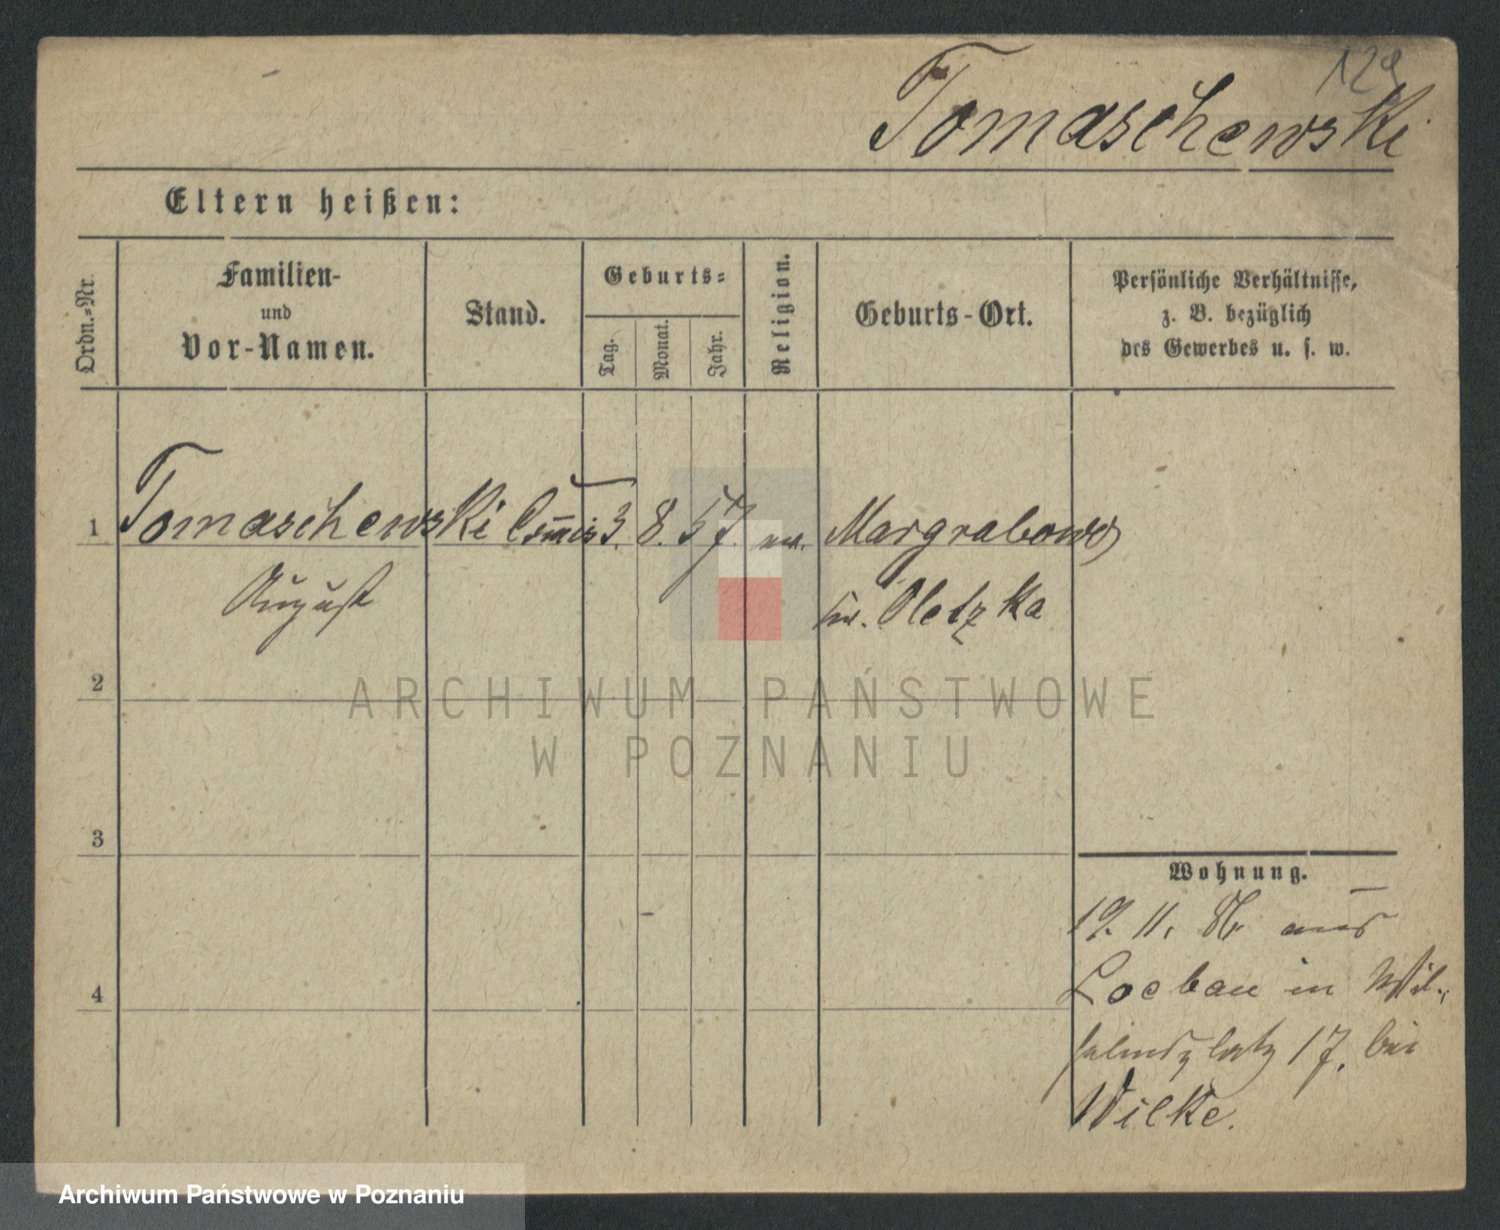 129
Tomaschewski
Eltern heißen:
Ordn.-Nr.
Familien-
und
Vor-Namen.
Stand.
Geburts-
Tag.
Monat.
Jahr.
Religion.
Geburts-Ort.
Persönliche Verhältnisse,
z. B. bezüglich
des Gewerbes u. s. w.
1 Tomaschewski Com̅is 3. 8. 57. ev. Margrabowo
August Oletzka
2
3
4
Wohnung.
19. 11. 86 aus
Loebau in Wil-
helmsplatz 17. bei
Wilke.
ARCHIWUM PAŃSTWOWE
W POZNANIU
Archiwum Państwowe w Poznaniu